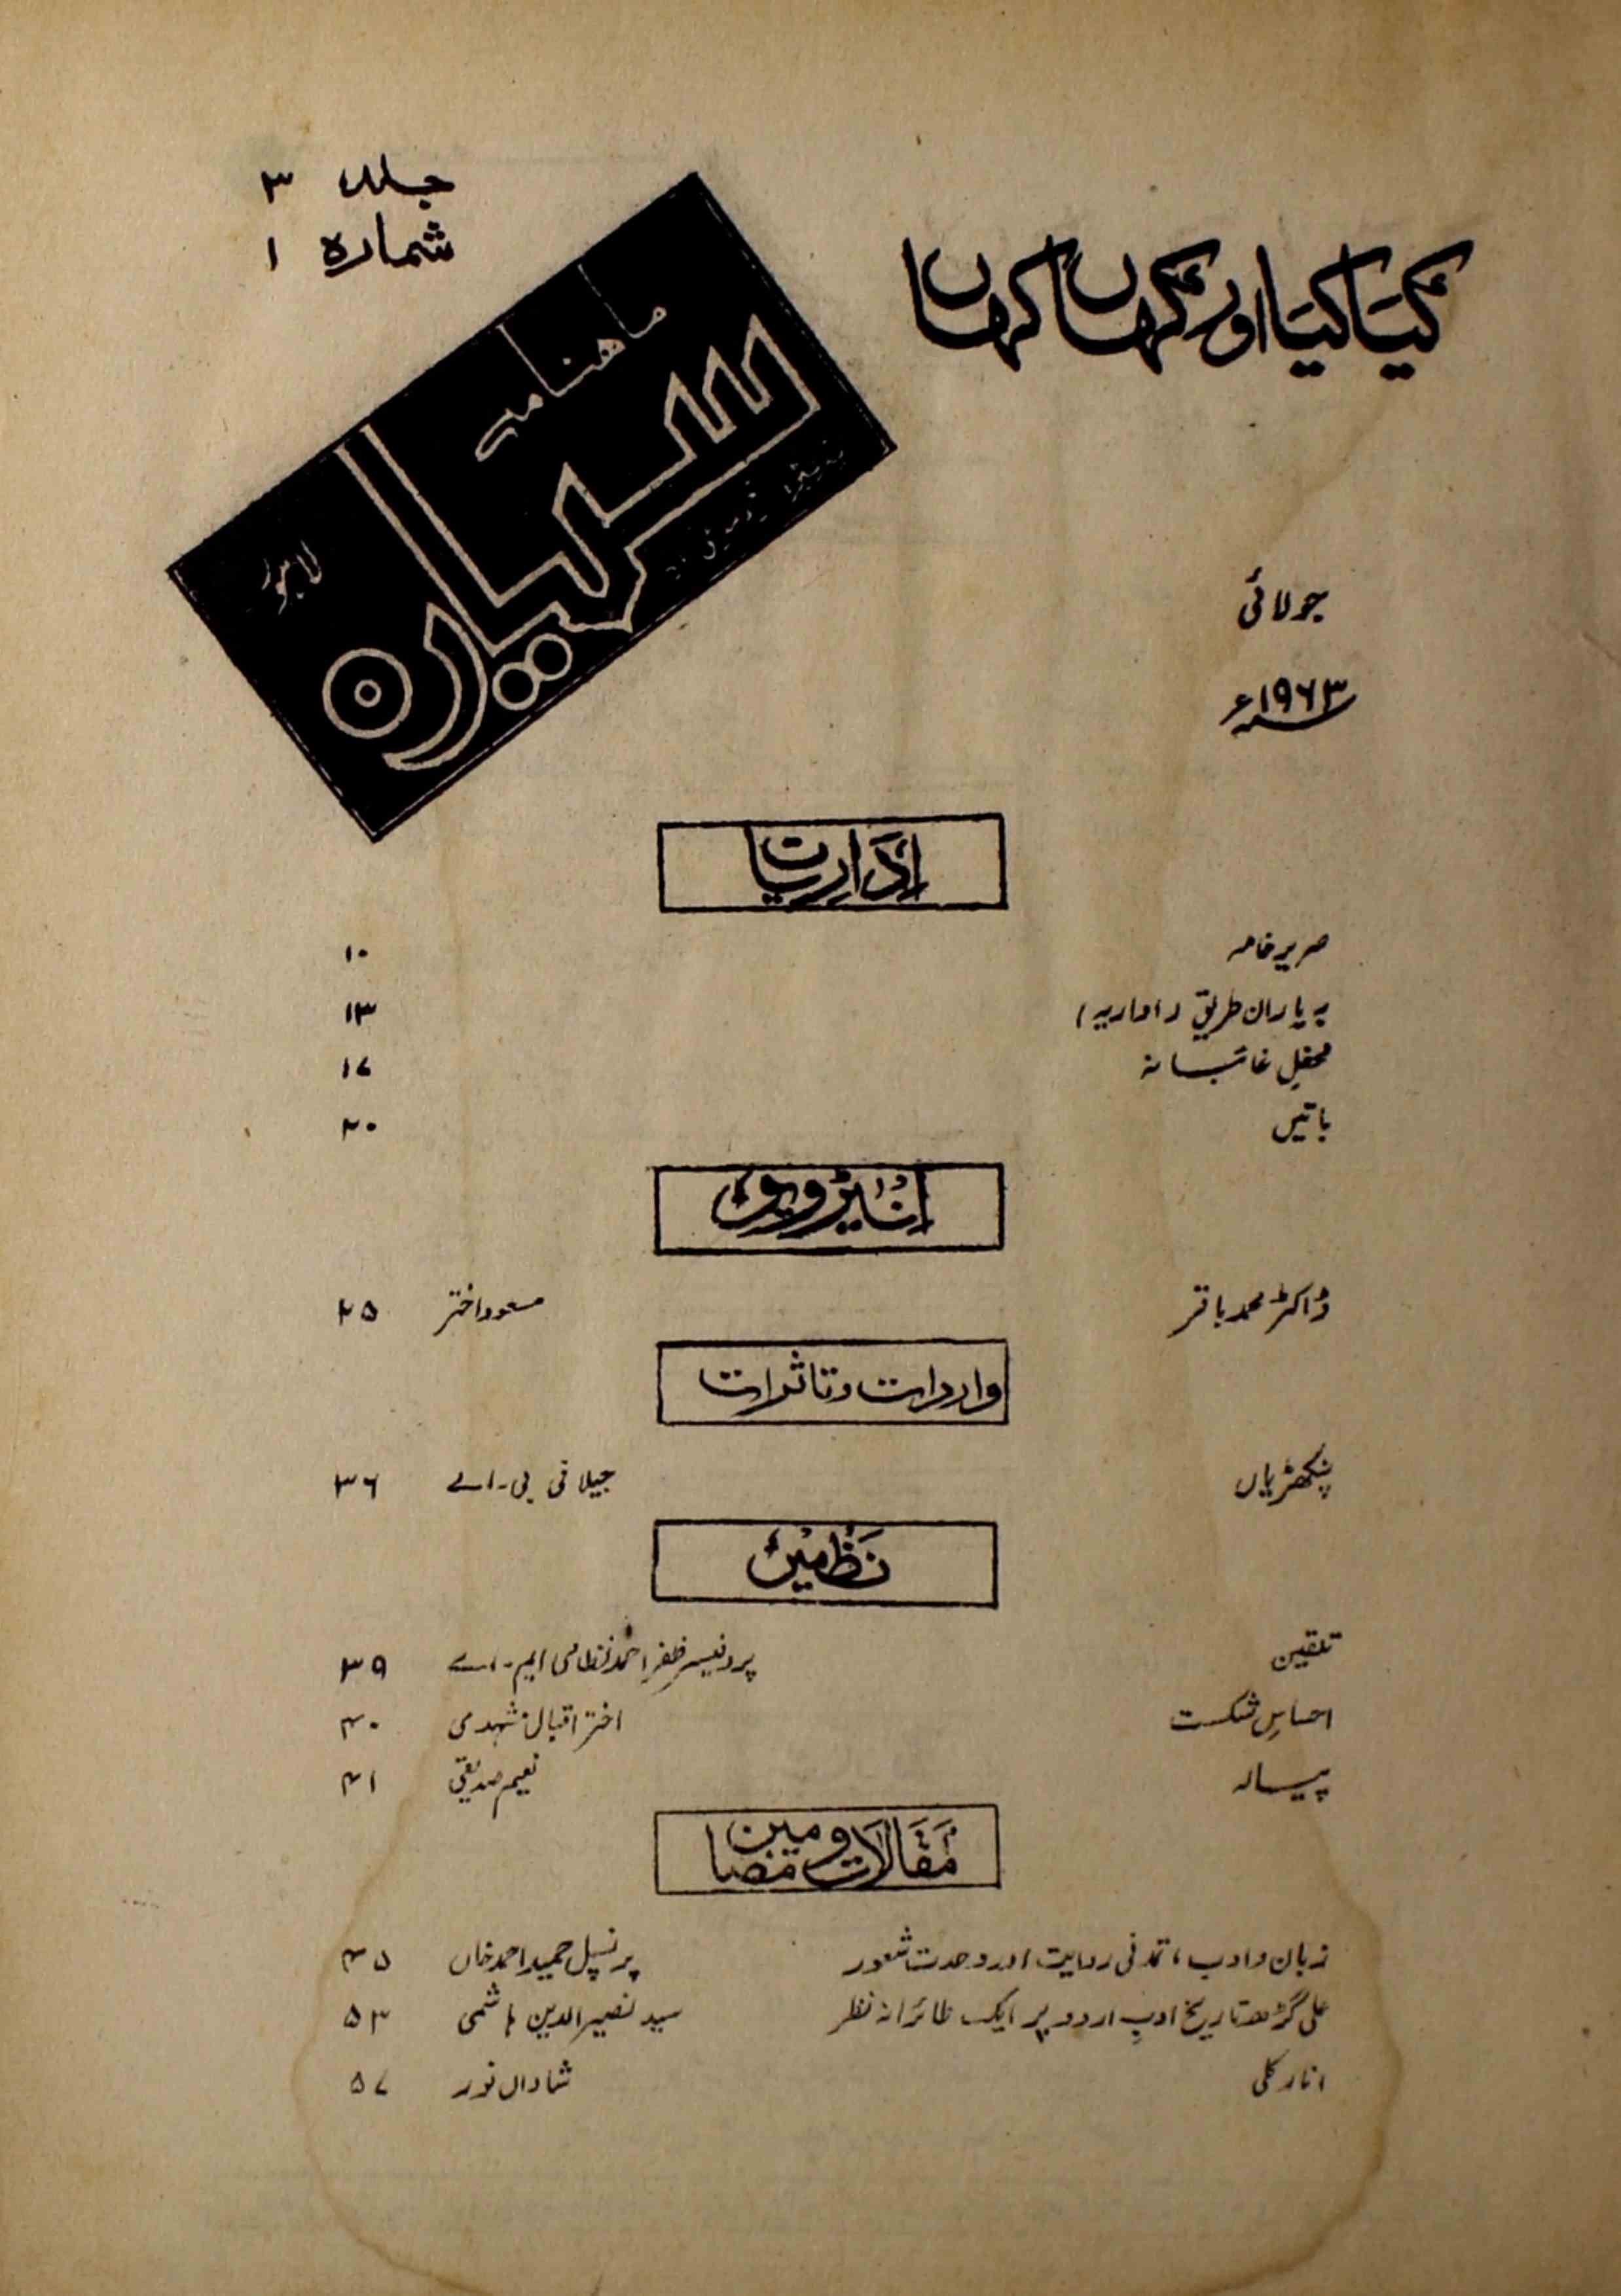 جلد ۳
شمارہ ۱
کیا کیا اور کہاں کہاں
ماہنامہ
سیارہ
لاہور
جولائی
۱۹۶۳ء
اداریات
صریر خامہ ۱۰
بہ یاران طریق (اداریہ) ۱۳
محفلِ غائبانہ ۱۷
باتیں ۲۰
انٹرویو
ڈاکٹر محمد باقر مسعود اختر ۲۵
واردات و تاثرات
پنکھڑیاں جیلانی بی۔اے ۳۶
نظمیں
تلقین پروفیسر ظفر احمد نظامی ایم۔اے ۳۹
احساسِ شکست اختر اقبال شہدمی ۴۰
پیالہ نعیم صدیقی ۴۱
مقالات و مضامین
زبان و ادب، تمدنی روایت اور وحدت شعور پرنسپل حمید احمد خاں ۴۵
علی گڑھ تاریخ ادبِ اردو پر ایک طائرانہ نظر سید نصیر الدین ہاشمی ۵۳
انار کلی شاداں نور ۵۷